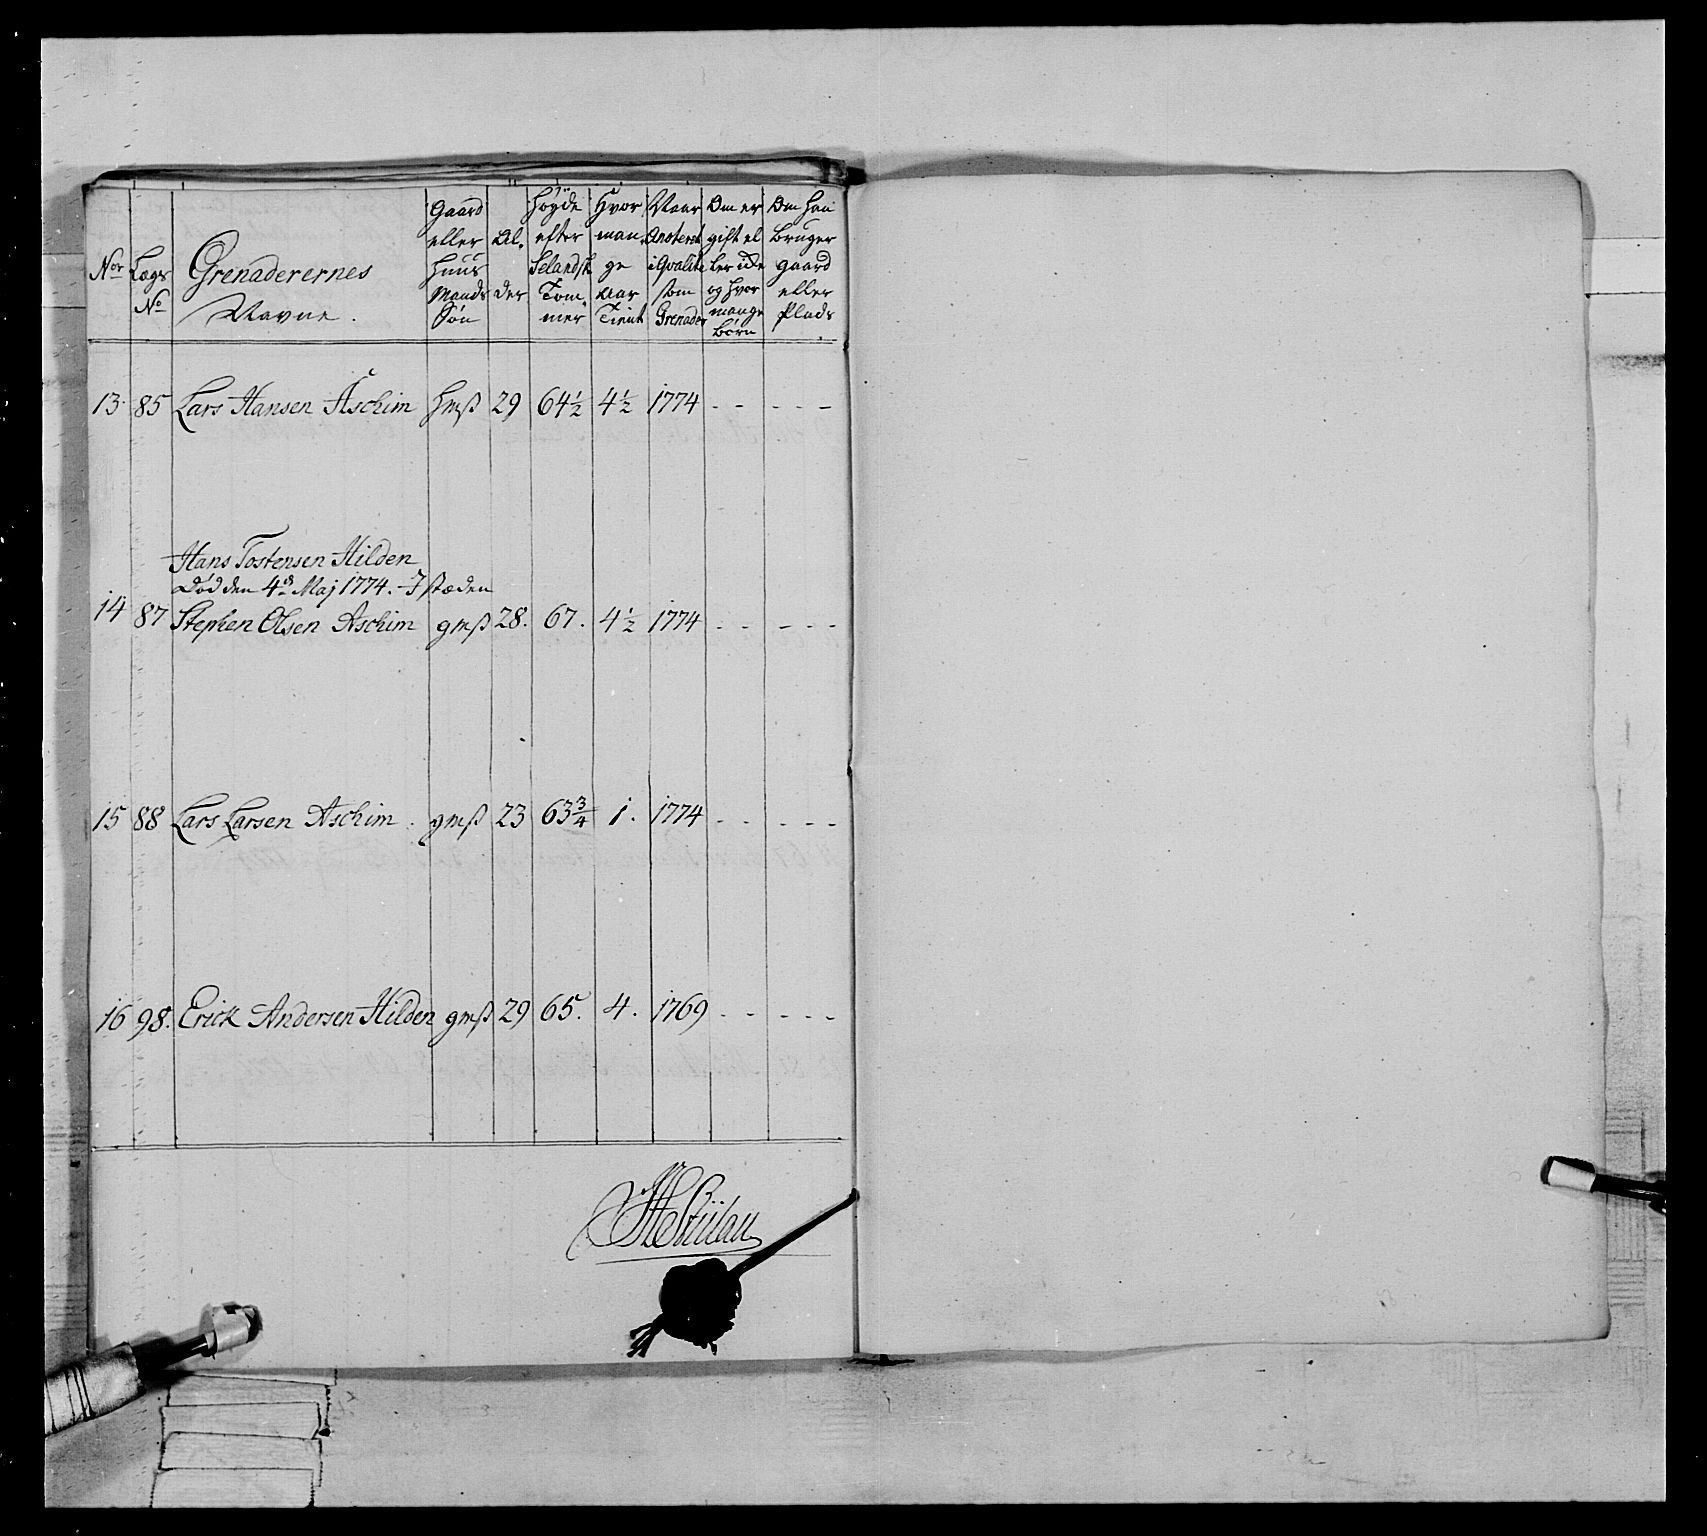 Nor
Lægs No
Grenaderernes Navne.
Gaard eller Huus Mands Søn
Al. der
Høyde efter Selandsk Tom. mer
Hvor man ge Aar Tient
Naar Anoteret i Qvalite som Grenader
Om er gift el ler icke og hvor mange børn
Om han bruger gaard eller Plads
13. 85 Lars Hansen Aschim hmß 29 64½ 4½ 1774 - - - - -
Hans Tostensen Hilden
Død den 4de Maj 1774. I stæden
14 87 Stephen Olsen Aschim gmß 28. 67. 4½ 1774 - - - - -
15 88 Lars Larsen Aschim. gmß 23 63¾ 1. 1774 - - - - -
16 98. Erick Andersen Hilden gmß 29 65. 4. 1769 - - - - -